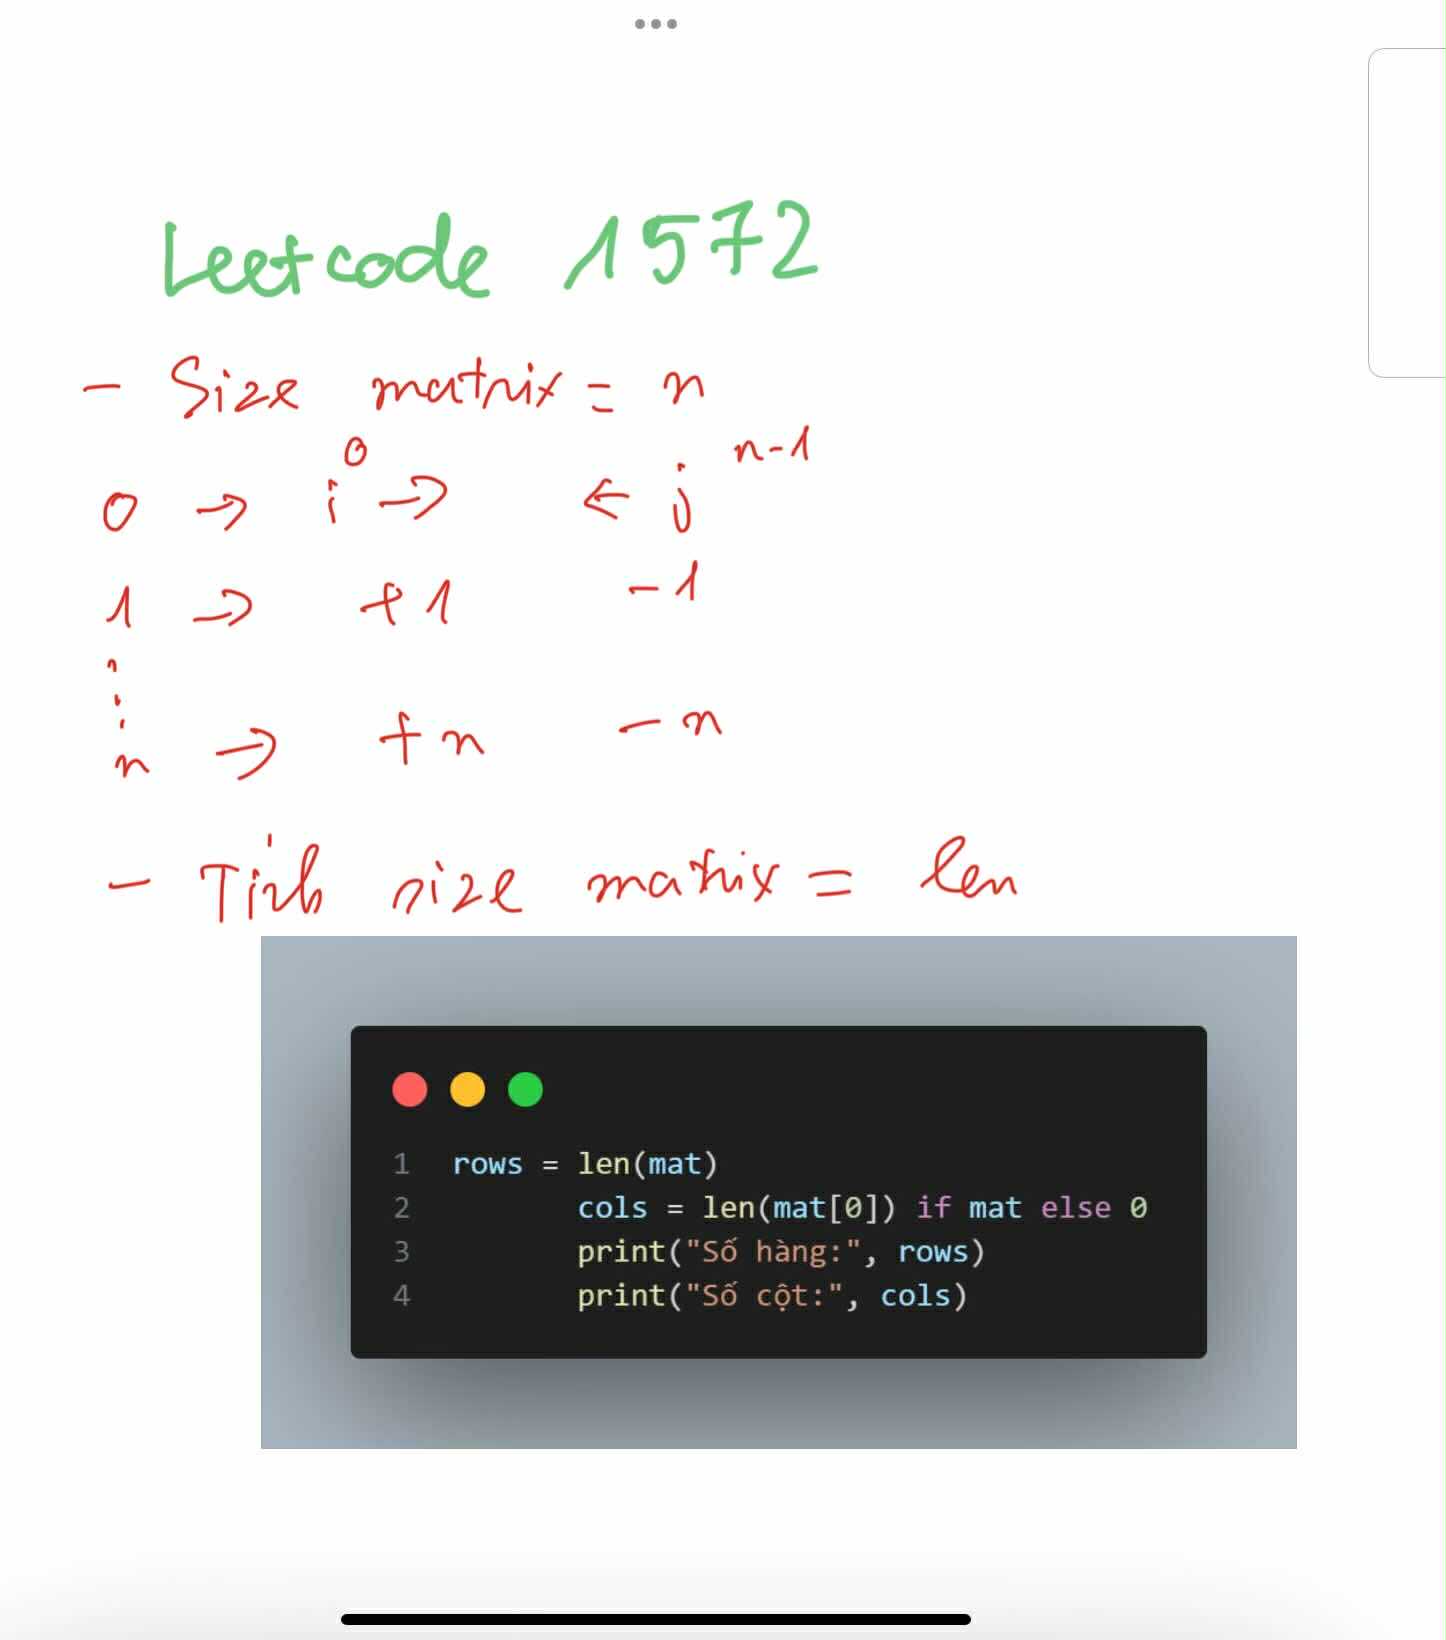 Leetcode 1572
- Size matrix = n
0 → i⁰ → ← j ⁿ⁻¹
1 → +1 -1
⋮
n → +n -n
- Tính size matrix = len
1 rows = len(mat)
2 cols = len(mat[0]) if mat else 0
3 print("Số hàng:", rows)
4 print("Số cột:", cols)